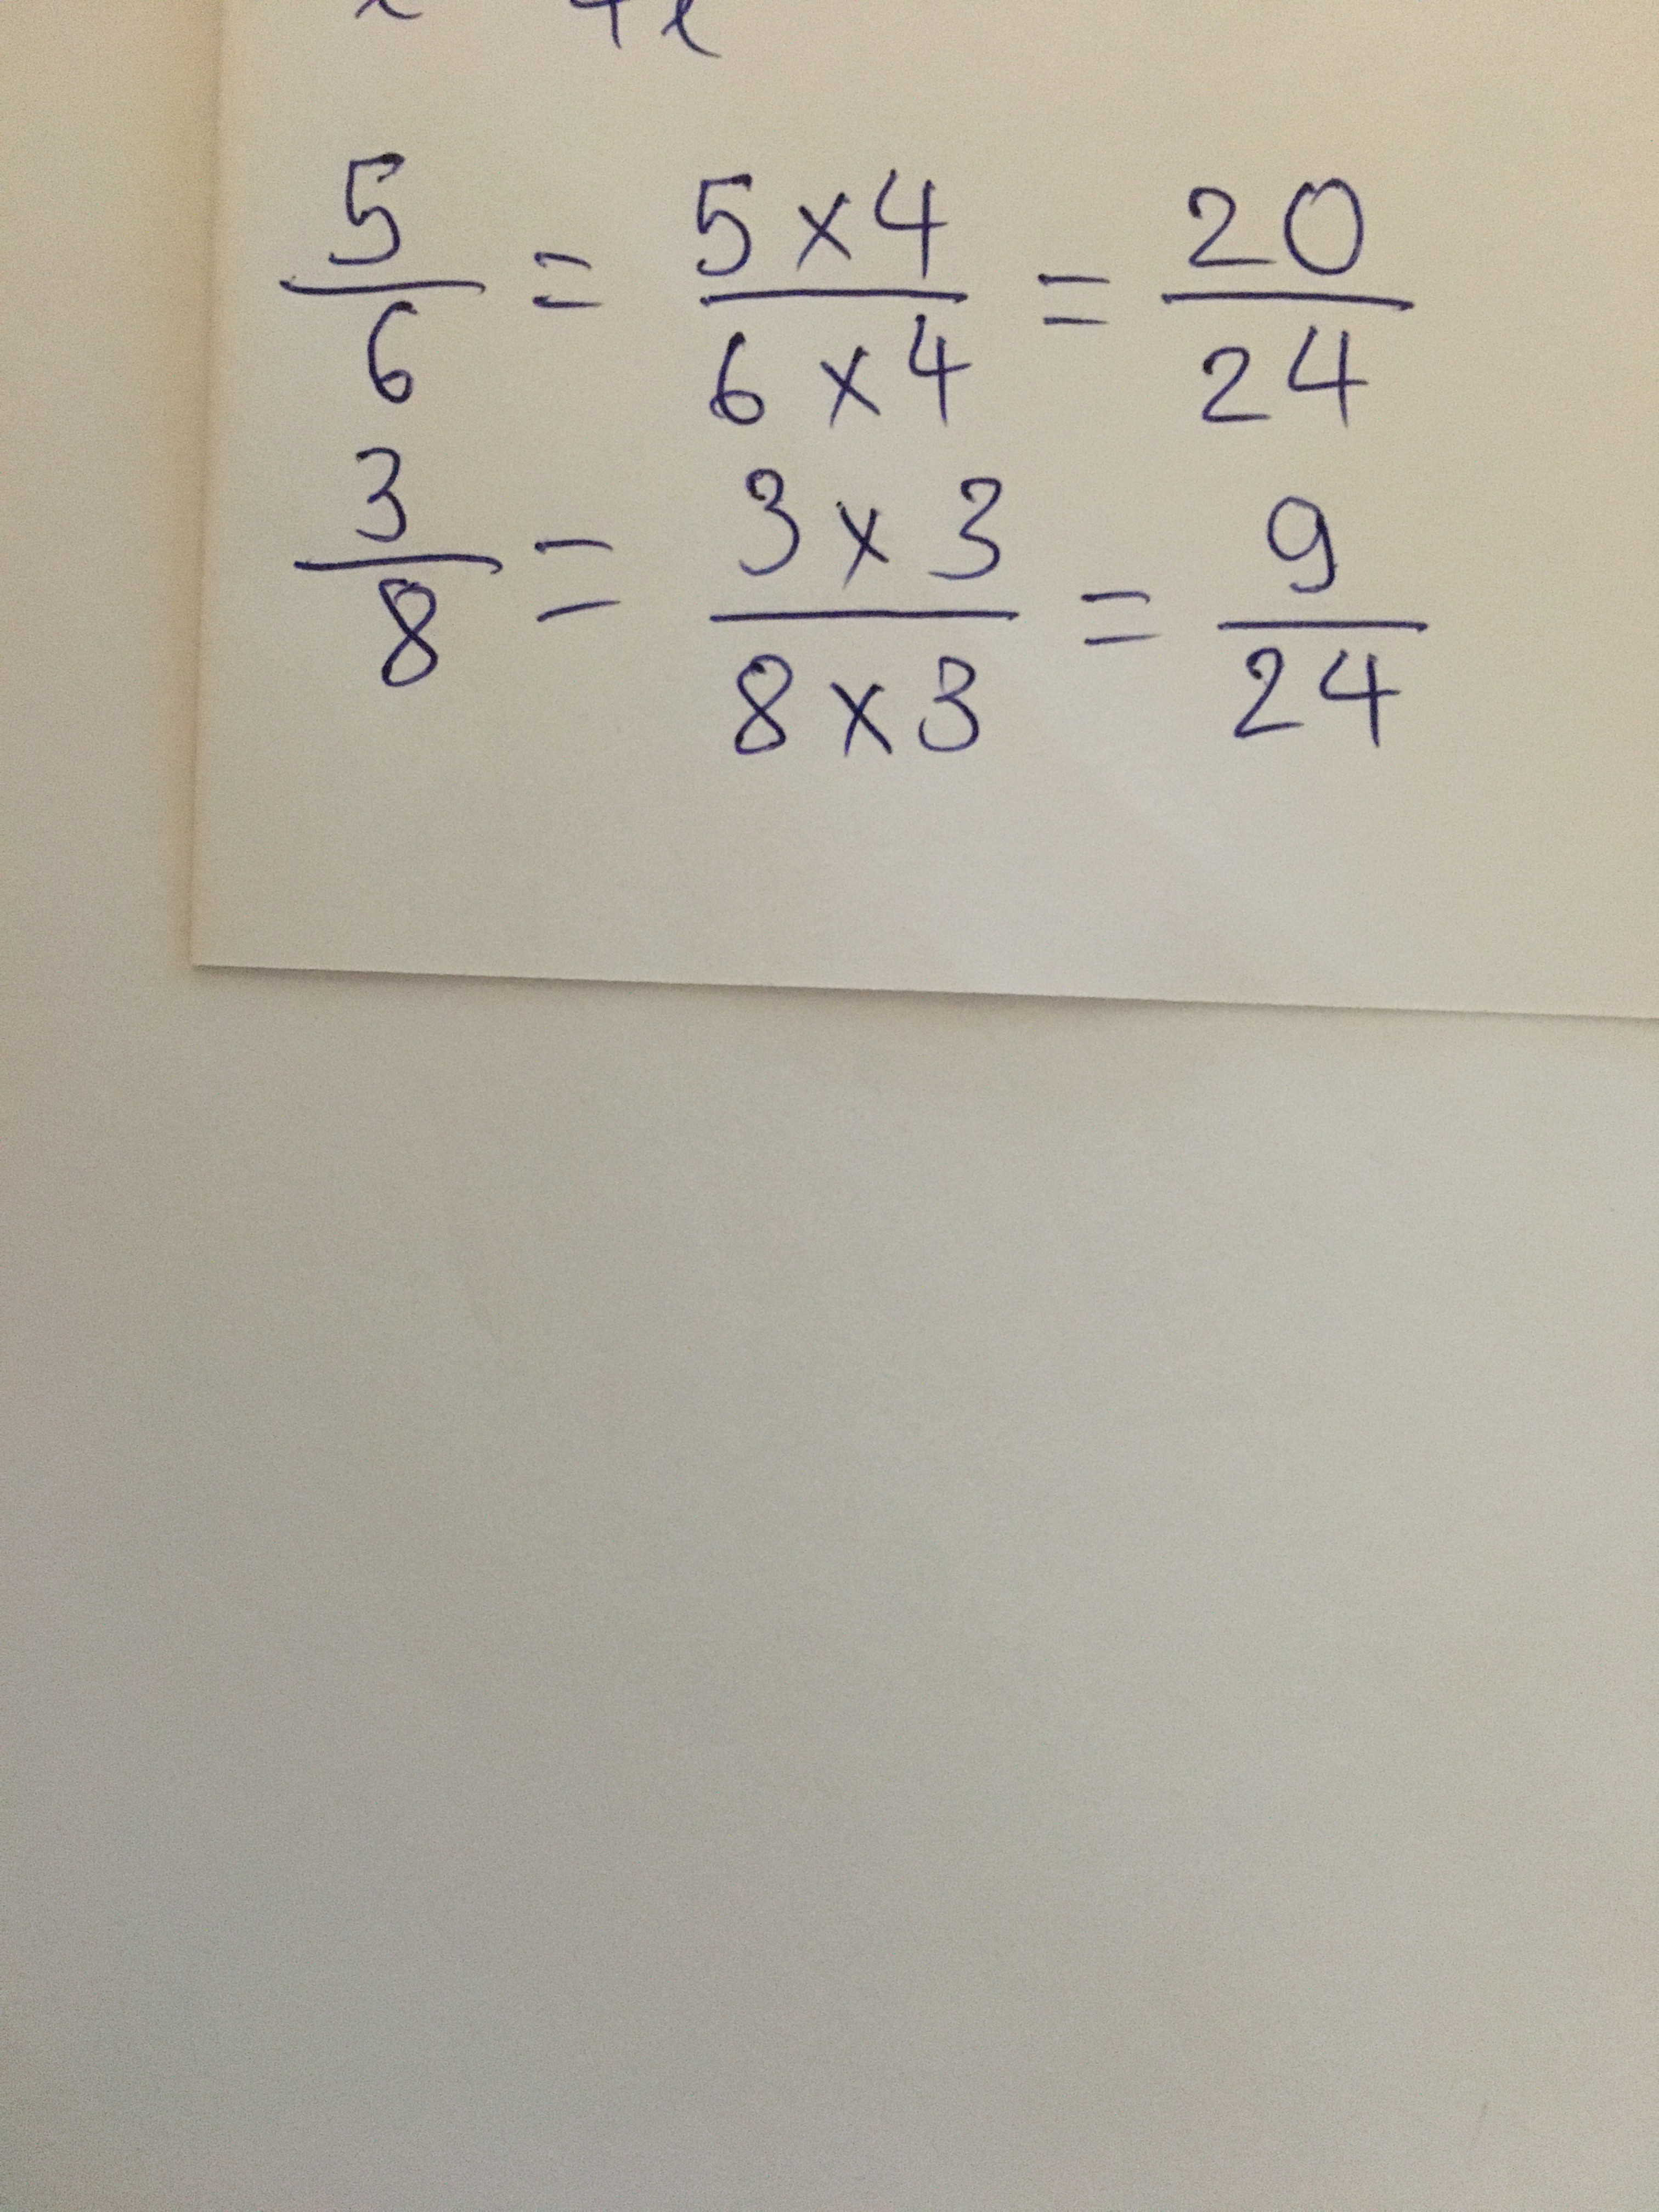 5/6 = 5×4/6×4 = 20/24
3/8 = 3×3/8×3 = 9/24